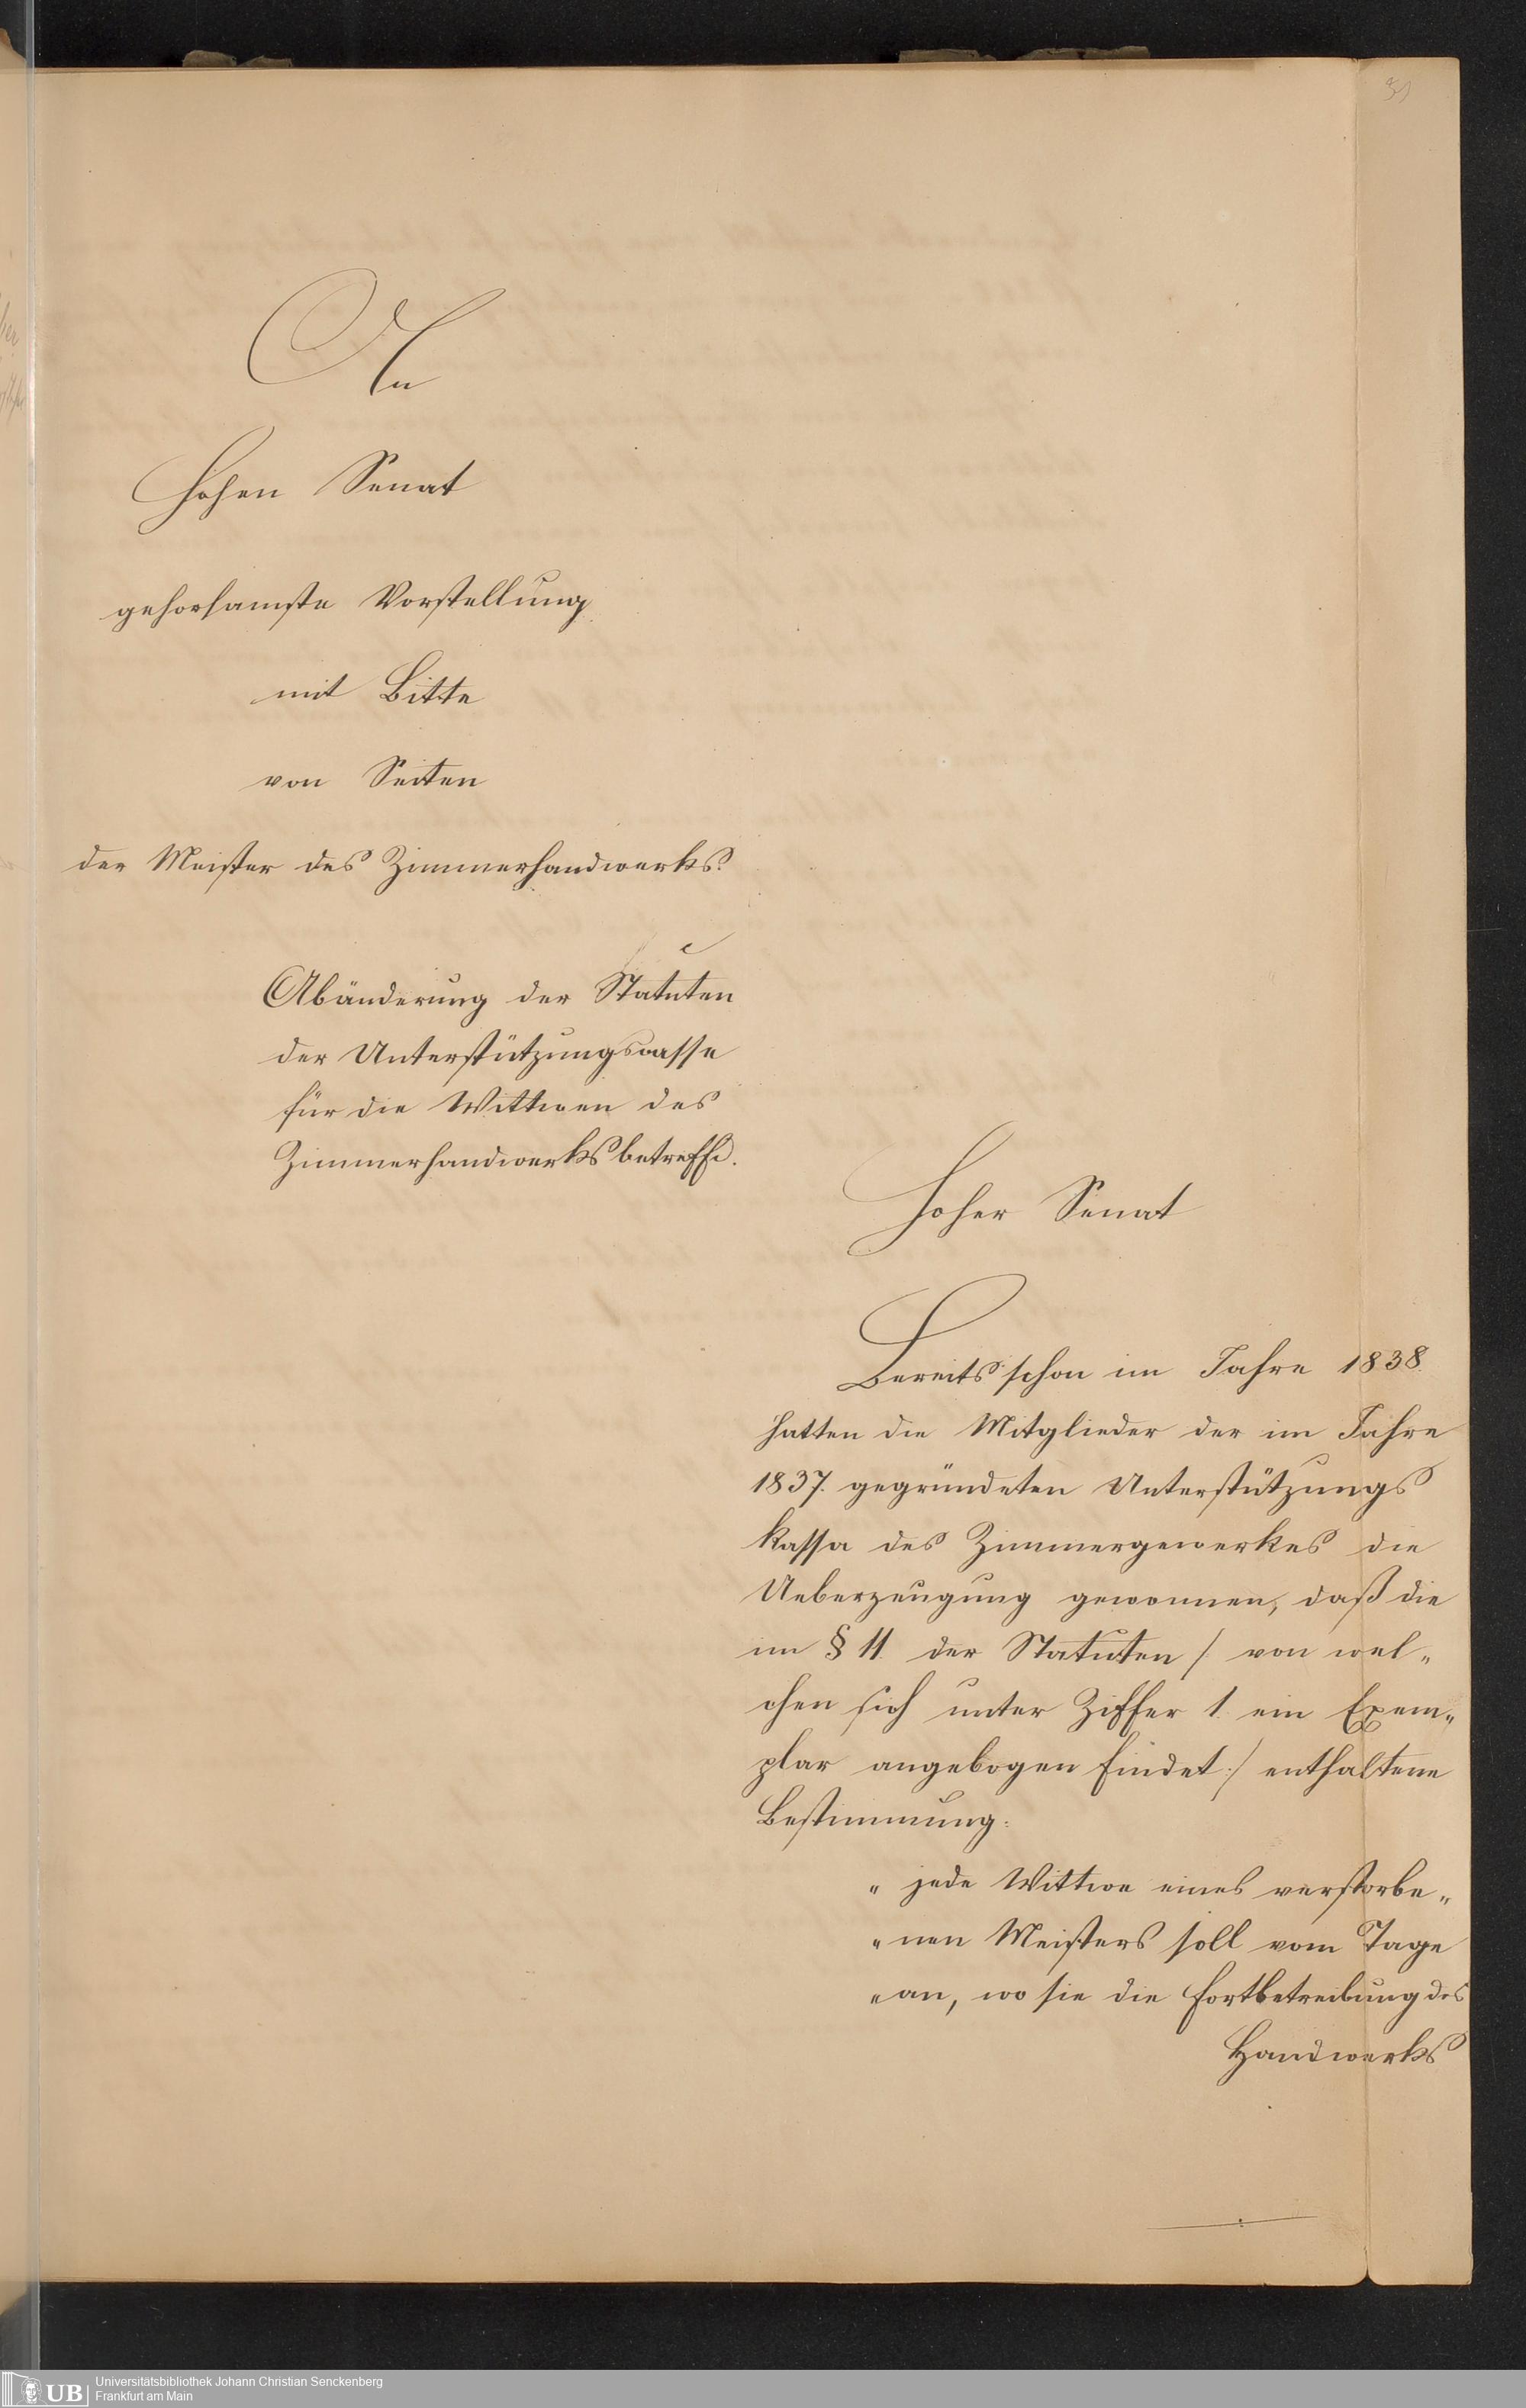 31
An
Hohen Senat
gehorsamste Vorstellung
mit Bitte
von Seiten
der Meister des Zimmerhandwerks.
Abänderung der Statuten
der Unterstützungscasse
für die Wittwen des
Zimmerhandwerks betreffd.
Hoher Senat
Bereits schon im Jahre 1838.
hatten die Mitglieder der im Jahre
1837. gegründeten Unterstützungs
kassa des Zimmergewerkes die
Ueberzeugung gewonnen, daß die
im § 11. der Statuten /: von wel„
chen sich unter Ziffer 1. ein Exem„
plar angebogen findet :/ enthaltene
Bestimmung:
„ jede Wittwe eines verstorbe„
„ nen Meisters soll vom Tage
„ an, wo sie die Fortbetreibung des
Handwerks
UB
Universitätsbibliothek Johann Christian Senckenberg
Frankfurt am Main